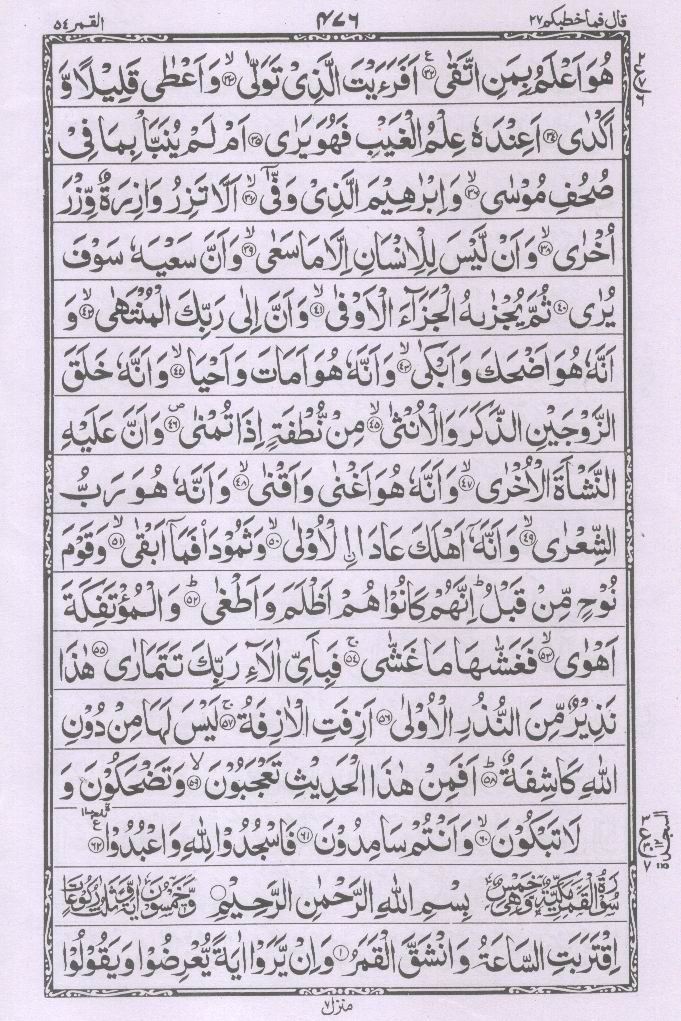 قال فما خطبكم ٢٧
٤٧٦
القمر ٥٤
هُوَ اَعْلَمُ بِمَنِ اتَّقٰى ۟ع۳۲ اَفَرَءَيْتَ الَّذِىْ تَوَلّٰى ۙ۳۳ وَاَعْطٰى قَلِيْلًا وَّ
اَكْدٰى ۳۴ اَعِنْدَهٗ عِلْمُ الْغَيْبِ فَهُوَ يَرٰى ۳۵ اَمْ لَمْ يُنَبَّاْ بِمَا فِىْ
صُحُفِ مُوْسٰى ۙ۳۶ وَاِبْرٰهِيْمَ الَّذِىْ وَفّٰىٓ ۙ۳۷ اَلَّا تَزِرُ وَازِرَةٌ وِّزْرَ
اُخْرٰى ۙ۳۸ وَاَنْ لَّيْسَ لِلْاِنْسَانِ اِلَّا مَا سَعٰى ۙ۳۹ وَاَنَّ سَعْيَهٗ سَوْفَ
يُرٰى ۴۰ ثُمَّ يُجْزٰىهُ الْجَزَآءَ الْاَوْفٰى ۙ۴۱ وَاَنَّ اِلٰى رَبِّكَ الْمُنْتَهٰى ۙ۴۲ وَ
اَنَّهٗ هُوَ اَضْحَكَ وَاَبْكٰى ۙ۴۳ وَاَنَّهٗ هُوَ اَمَاتَ وَاَحْيَا ۙ۴۴ وَاَنَّهٗ خَلَقَ
الزَّوْجَيْنِ الذَّكَرَ وَالْاُنْثٰى ۙ۴۵ مِنْ نُّطْفَةٍ اِذَا تُمْنٰى ص۴۶ وَاَنَّ عَلَيْهِ
النَّشْاَةَ الْاُخْرٰى ۙ۴۷ وَاَنَّهٗ هُوَ اَغْنٰى وَاَقْنٰى ۙ۴۸ وَاَنَّهٗ هُوَ رَبُّ
الشِّعْرٰى ۙ۴۹ وَاَنَّهٗٓ اَهْلَكَ عَادَا اۨلْاُوْلٰى ۙ۵۰ وَثَمُوْدَا۟ فَمَآ اَبْقٰى ۙ۵۱ وَقَوْمَ
نُوْحٍ مِّنْ قَبْلُ ؕ اِنَّهُمْ كَانُوْا هُمْ اَظْلَمَ وَاَطْغٰى ؕ۵۲ وَالْمُؤْتَفِكَةَ
اَهْوٰى ۙ۵۳ فَغَشّٰىهَا مَا غَشّٰى ۚ۵۴ فَبِاَىِّ اٰلَآءِ رَبِّكَ تَتَمَارٰى ۵۵ هٰذَا
نَذِيْرٌ مِّنَ النُّذُرِ الْاُوْلٰى ۵۶ اَزِفَتِ الْاٰزِفَةُ ۚ۵۷ لَيْسَ لَهَا مِنْ دُوْنِ
اللّٰهِ كَاشِفَةٌ ؕ۵۸ اَفَمِنْ هٰذَا الْحَدِيْثِ تَعْجَبُوْنَ ۙ۵۹ وَتَضْحَكُوْنَ وَ
لَا تَبْكُوْنَ ۙ۶۰ وَاَنْتُمْ سَامِدُوْنَ ۶۱ فَاسْجُدُوْا لِلّٰهِ وَاعْبُدُوْا ۩ع۶۲
سُوْرَةُ الْقَمَرِ مَكِّيَّةٌ وَّهِىَ خَمْسٌ بِسْمِ اللّٰهِ الرَّحْمٰنِ الرَّحِيْمِ وَّخَمْسُوْنَ اٰيَةً وَّثَلٰثُ رُكُوْعَاتٍ
اِقْتَرَبَتِ السَّاعَةُ وَانْشَقَّ الْقَمَرُ ۱ وَاِنْ يَّرَوْا اٰيَةً يُّعْرِضُوْا وَيَقُوْلُوْا
منزل ٧